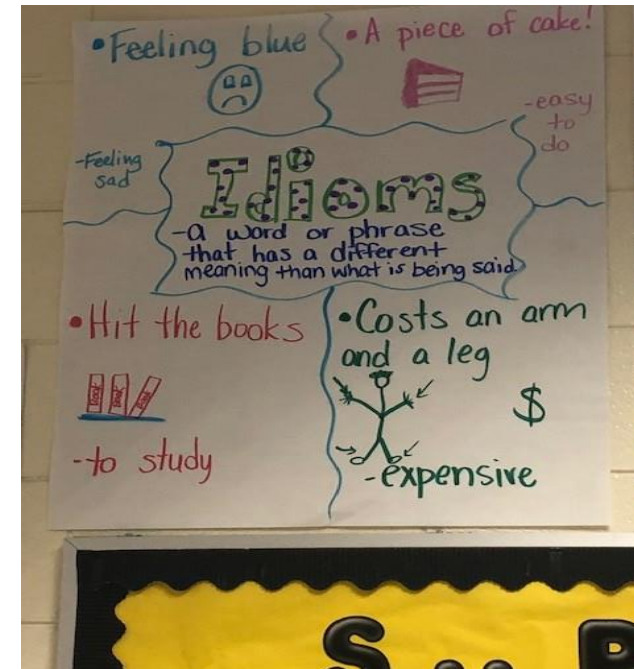 •Feeling blue
-Feeling
sad
•A piece of cake!
-easy
to
do
Idioms
-a word or phrase
that has a different
meaning than what is being said
•Hit the books
-to study
•Costs an arm
and a leg
$
-expensive